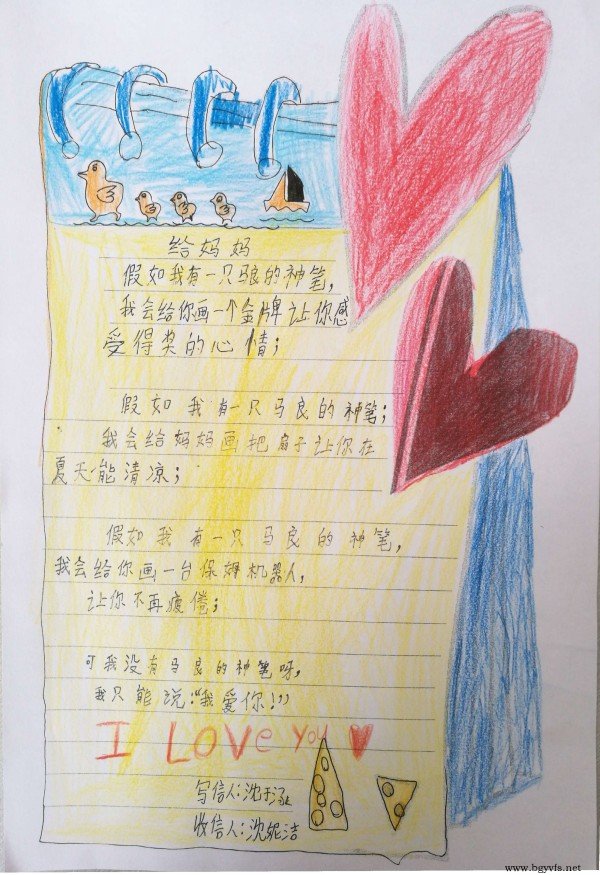 给妈妈
假如我有一只马良的神笔，
我会给你画一个金牌让你感
受得奖的心情；
假如我有一只马良的神笔；
我会给妈妈画把扇子让你在
夏天能清凉；
假如我有一只马良的神笔，
我会给你画一台保姆机器人，
让你不再疲倦；
可我没有马良的神笔呀，
我只能说：“我爱你！”
I LOVe you
写信人：沈于
收信人：沈妮洁
www.bgyvfs.net